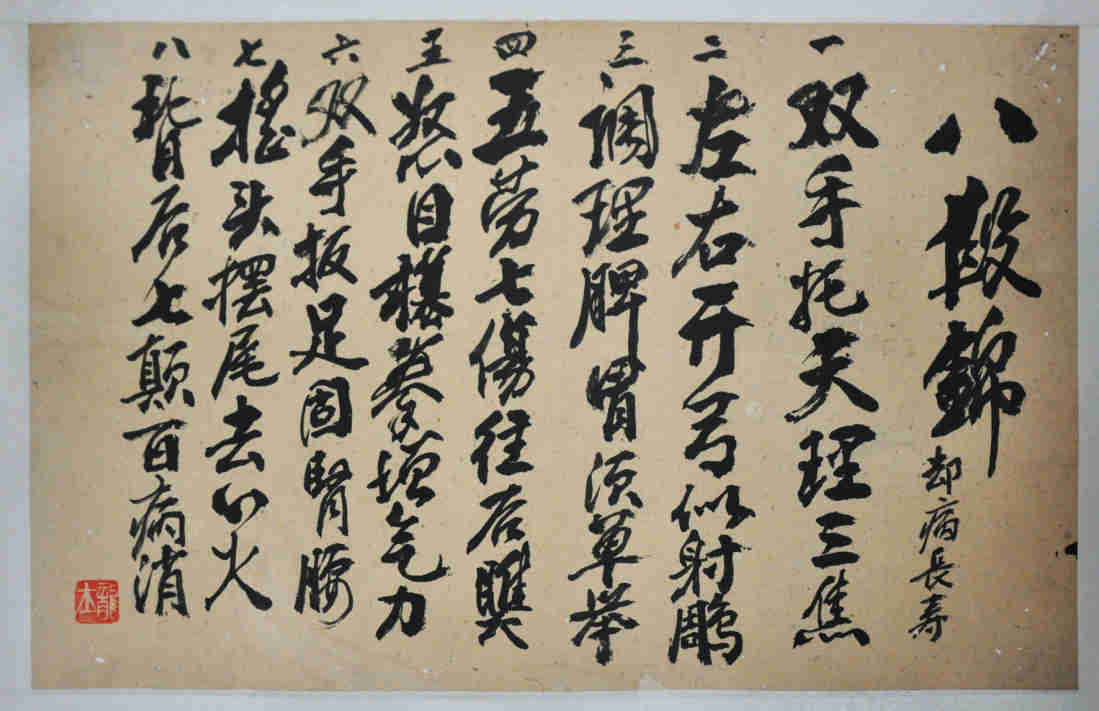 八段錦 却病長寿
一 双手托天理三焦
二 左右开弓似射鵰
三 调理脾胃须单举
四 五劳七傷往后瞧
五 怒目拳增气力
六 双手扳足固腎腰
七 搖头摆尾去心火
八 背后七颠百病消